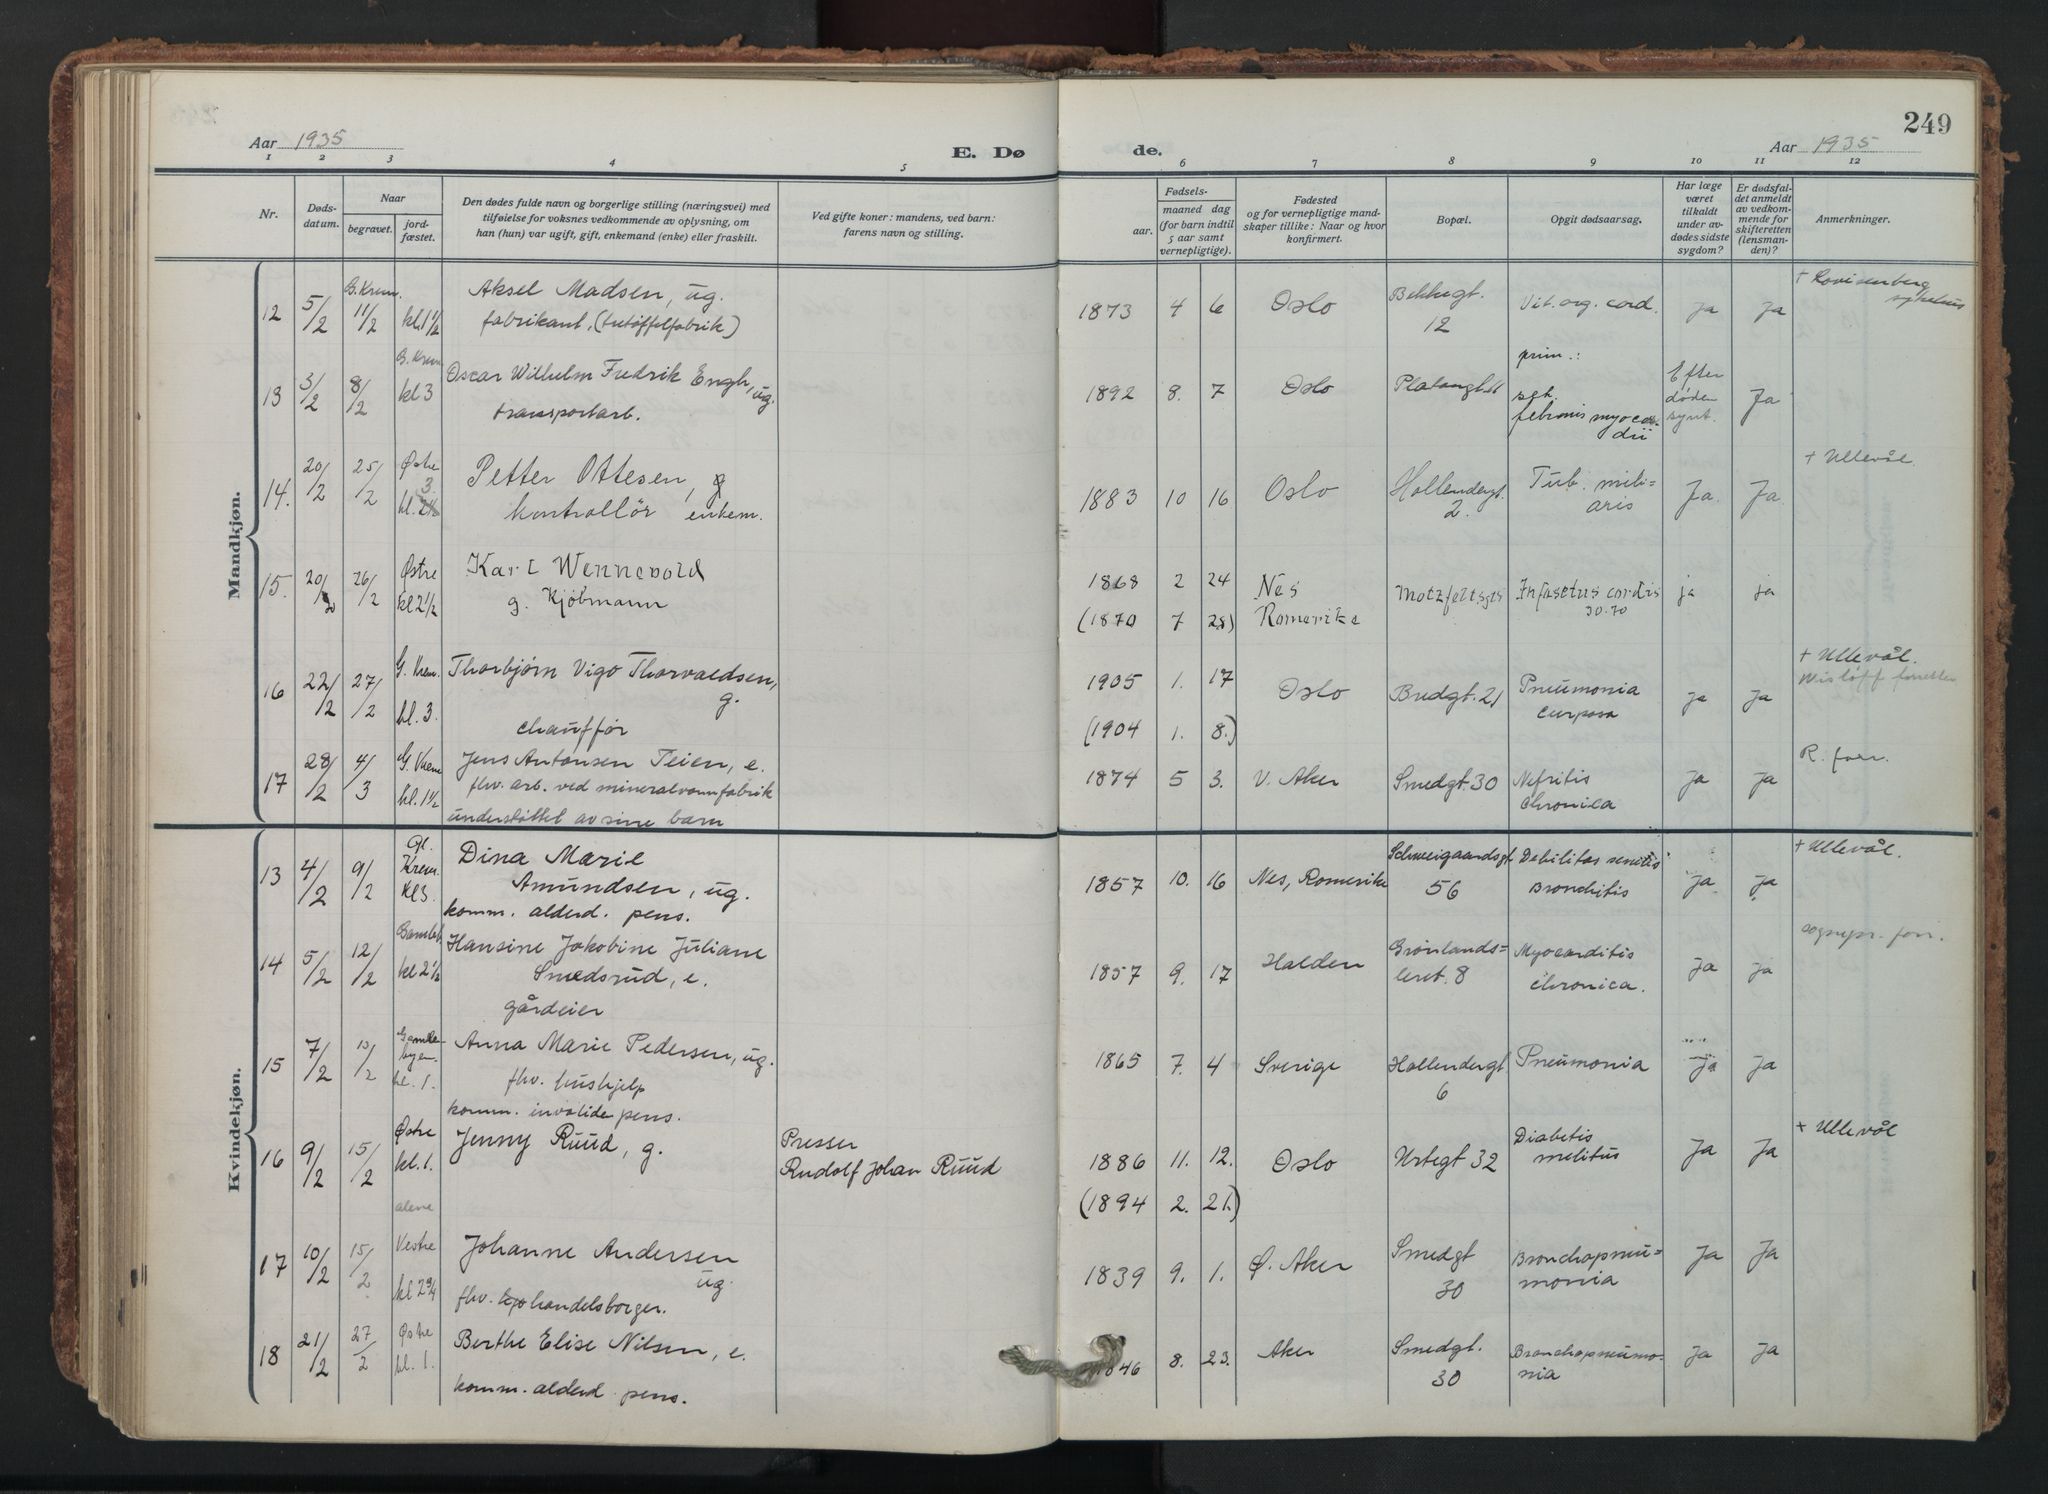 249
Aar 1935
E. Dø
de.
Aar 1935
1 2 3 4 5 6 7 8 9 10 11 12
Nr.
Døds-
datum.
Naar
begravet.
jord-
fæstet.
Den dødes fulde navn og borgerlige stilling (næringsvei) med
tilføielse for voksnes vedkommende av oplysning, om
han (hun) var ugift, gift, enkemand (enke) eller fraskilt.
Ved gifte koner: mandens, ved barn:
farens navn og stilling.
Fødsels-
aar.
maaned dag
(for barn indtil
5 aar samt
vernepligtige).
Fødested
og for vernepligtige mand-
skaper tillike: Naar og hvor
konfirmert.
Bopæl.
Opgit dødsaarsag.
Har læge
været
tilkaldt
under av-
dødes sidste
sygdom?
Er dødsfal-
det anmeldt
av vedkom-
mende for
skifteretten
(lensman-
den)?
Anmerkninger.
Mandkjøn.
12 5/2 G. Krem. 11/2 kl. 1 1/2
Aksel Madsen, ug.
fabrikant, (tutøffelfabrik)
1873 4 6 Oslo
Bekkegt.
12
Vit. org. cord. Ja Ja
+ Lovisenberg
sykehus
13 3/2 8/2 G. Krem kl 3
Oscar Wilhelm Fredrik Engh, ug.
transportarb.
1892 8. 7 Oslo Platougt.
prim.:
sek.
febronis myocar-
dii
Efter
døden
synt.
Ja
14. 20/2 25/2 Østre kl. 3
Petter Ottesen, g
kontrollör enkem.
1883 10 16 Oslo
Hollendergt.
2.
Tub. mili-
aris
Ja. Ja.
+ Ullevål.
15. 20/2 26/2 Østre kl 2 1/2
Karl Wennevold
g. Kjöbmann
1868 2 24
(1870 7 28)
Nes
Romerike
Motzfeltsgt
Infasctus cordis
ja ja
16 22/2 27/2 G. Krem. kl. 3.
Thorbjørn Vigo Thorvaldsen,
g.
chauffør
1905 1. 17
(1904 1. 8.)
Oslo Brudgt. 21
Pneumonia
curposa
Ja Ja
+ Ullevål.
Wisløff forretter
17 28/2 4/3 G. Krem kl. 1 1/2
Jens Antonsen Teien, e.
fhv. arb. ved mineralvannfabrik
understöttet av sine barn
1874 5 3. V. Aker Smedgt. 30
Nefritis
chronica
Ja Ja
R. forr.
Kvindekjøn.
13 4/2 9/2 Gl. Krem. Kl 3.
Dina Marie
Amundsen, ug.
komm. alderd. pens.
1857 10. 16 Nes, Romerike
Schweigaardsgt.
56
Debilitas senilis
Bronchitis
Ja Ja
+ Ullevål.
14 5/2 12/2 Gamleb. kl 2 1/2
Hansine Jakobine Juliane
Smedsrud, e.
gårdeier
1857 9. 17 Halden
Grønlands=
leret. 8
Myocarditis
chronica.
Ja Ja
sognepr. forr.
15 7/2 13/2 Gamle-
byen
kl. 1.
Anna Marie Pedersen, ug.
fhv. hushjelp
komm. invalide pens.
1865 7. 4 Sverige
Hollendergt.
6
Pneumonia Ja Ja
16 9/2 15/2 Østre kl. 1.
alene
Jenny Ruud, g.
Presser
Rudolf Johan Ruud
1886 11. 12.
(1894 2. 21.)
Oslo Urtegt 32
Diabetis
melitus
Ja Ja
+ Ullevål
17 10/2 15/2 Vestre kl 2 3/4
Johanne Andersen
ug.
fhv. handelsborger.
1839 9. 1. Ø. Aker
Smedgt
30
Bronchopneu=
monia
Ja Ja
18 21/2 27/2 Østre kl. 1.
Berthe Elise Nilsen, e.
komm. alderd. pens.
1846 8. 23. Aker
Smedgt.
30
Bronchopneumo-
nia
Ja Ja